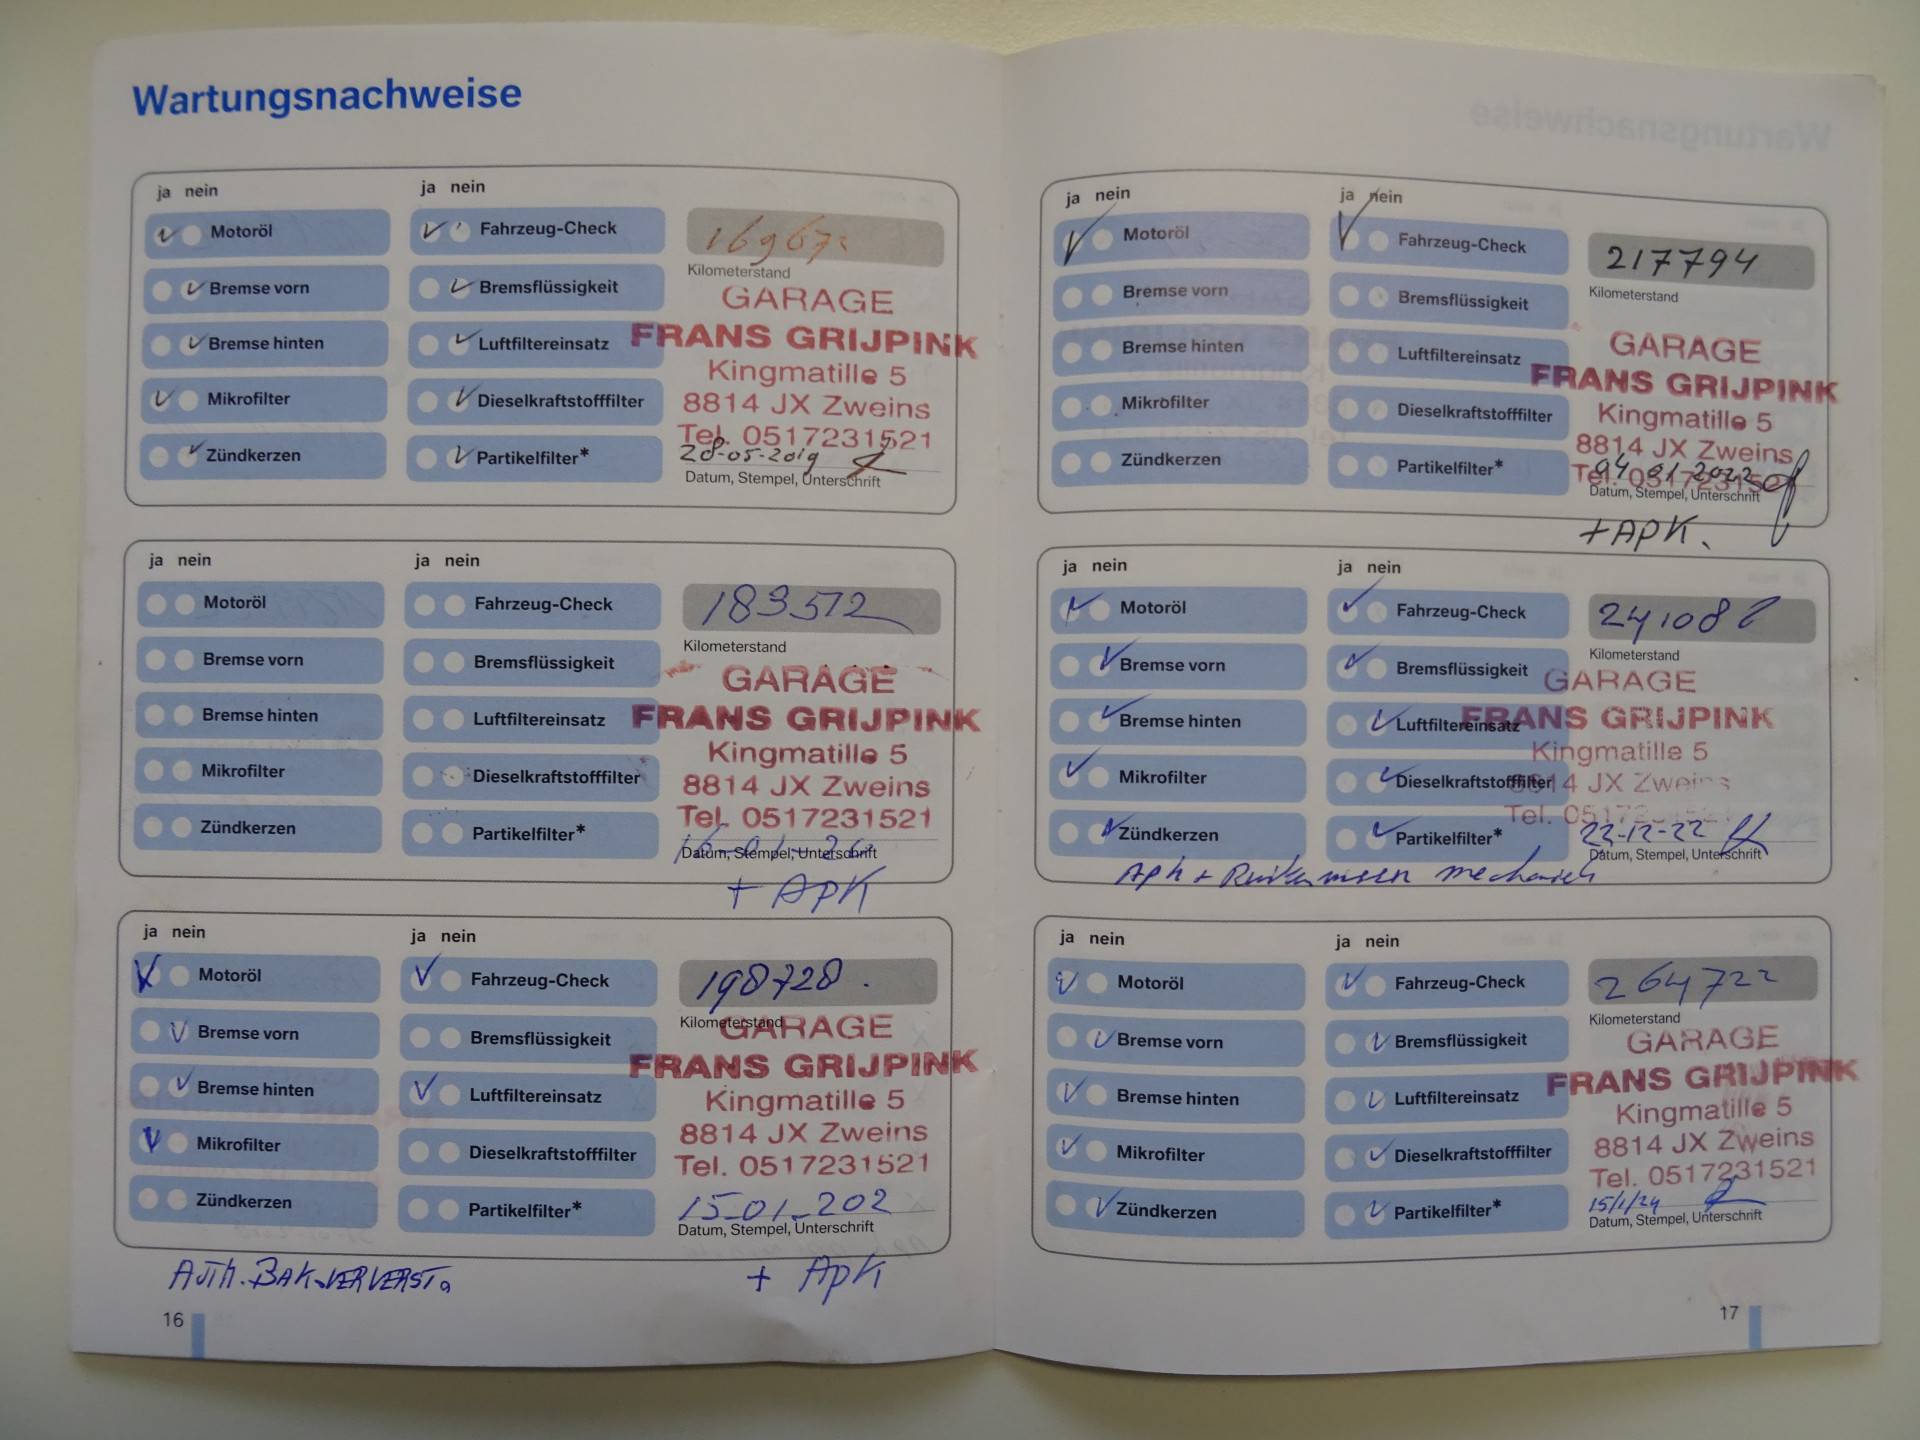 Wartungsnachweise
ja nein
ja nein
Motoröl
Fahrzeug-Check
Bremse vorn
Bremsflüssigkeit
Kilometerstand
Bremse hinten
Luftfiltereinsatz
Mikrofilter
Dieselkraftstofffilter
Zündkerzen
Partikelfilter*
GARAGE
FRANS GRIJPINK
Kingmatille 5
8814 JX Zweins
Tel. 0517231521
28-05-2019
Datum, Stempel, Unterschrift
ja nein
ja nein
Motoröl
Fahrzeug-Check
183512
Bremse vorn
Bremsflüssigkeit
Kilometerstand
Bremse hinten
Luftfiltereinsatz
Mikrofilter
Dieselkraftstofffilter
Zündkerzen
Partikelfilter*
GARAGE
FRANS GRIJPINK
Kingmatille 5
8814 JX Zweins
Tel. 0517231521
Datum, Stempel, Unterschrift
+ APK
ja nein
ja nein
Motoröl
Fahrzeug-Check
198728.
Bremse vorn
Bremsflüssigkeit
Kilometerstand
Bremse hinten
Luftfiltereinsatz
Mikrofilter
Dieselkraftstofffilter
Zündkerzen
Partikelfilter*
GARAGE
FRANS GRIJPINK
Kingmatille 5
8814 JX Zweins
Tel. 0517231521
15-01-202
Datum, Stempel, Unterschrift
BAK VERVERST.
+ APK
16
ja nein
ja nein
Motoröl
Fahrzeug-Check
217794
Bremse vorn
Bremsflüssigkeit
Kilometerstand
Bremse hinten
Luftfiltereinsatz
Mikrofilter
Dieselkraftstofffilter
Zündkerzen
Partikelfilter*
GARAGE
FRANS GRIJPINK
Kingmatille 5
8814 JX Zweins
Tel. 0517231521
04-01-2022
Datum, Stempel, Unterschrift
+ APK.
ja nein
ja nein
Motoröl
Fahrzeug-Check
Bremse vorn
Bremsflüssigkeit
Kilometerstand
Bremse hinten
Luftfiltereinsatz
Mikrofilter
Dieselkraftstofffilter
Zündkerzen
Partikelfilter*
GARAGE
FRANS GRIJPINK
Kingmatille 5
8814 JX Zweins
Tel.
22-12-22
Datum, Stempel, Unterschrift
APK +
ja nein
ja nein
Motoröl
Fahrzeug-Check
264722
Bremse vorn
Bremsflüssigkeit
Kilometerstand
Bremse hinten
Luftfiltereinsatz
Mikrofilter
Dieselkraftstofffilter
Zündkerzen
Partikelfilter*
GARAGE
FRANS GRIJPINK
Kingmatille 5
8814 JX Zweins
Tel. 0517231521
15/1/24
Datum, Stempel, Unterschrift
17